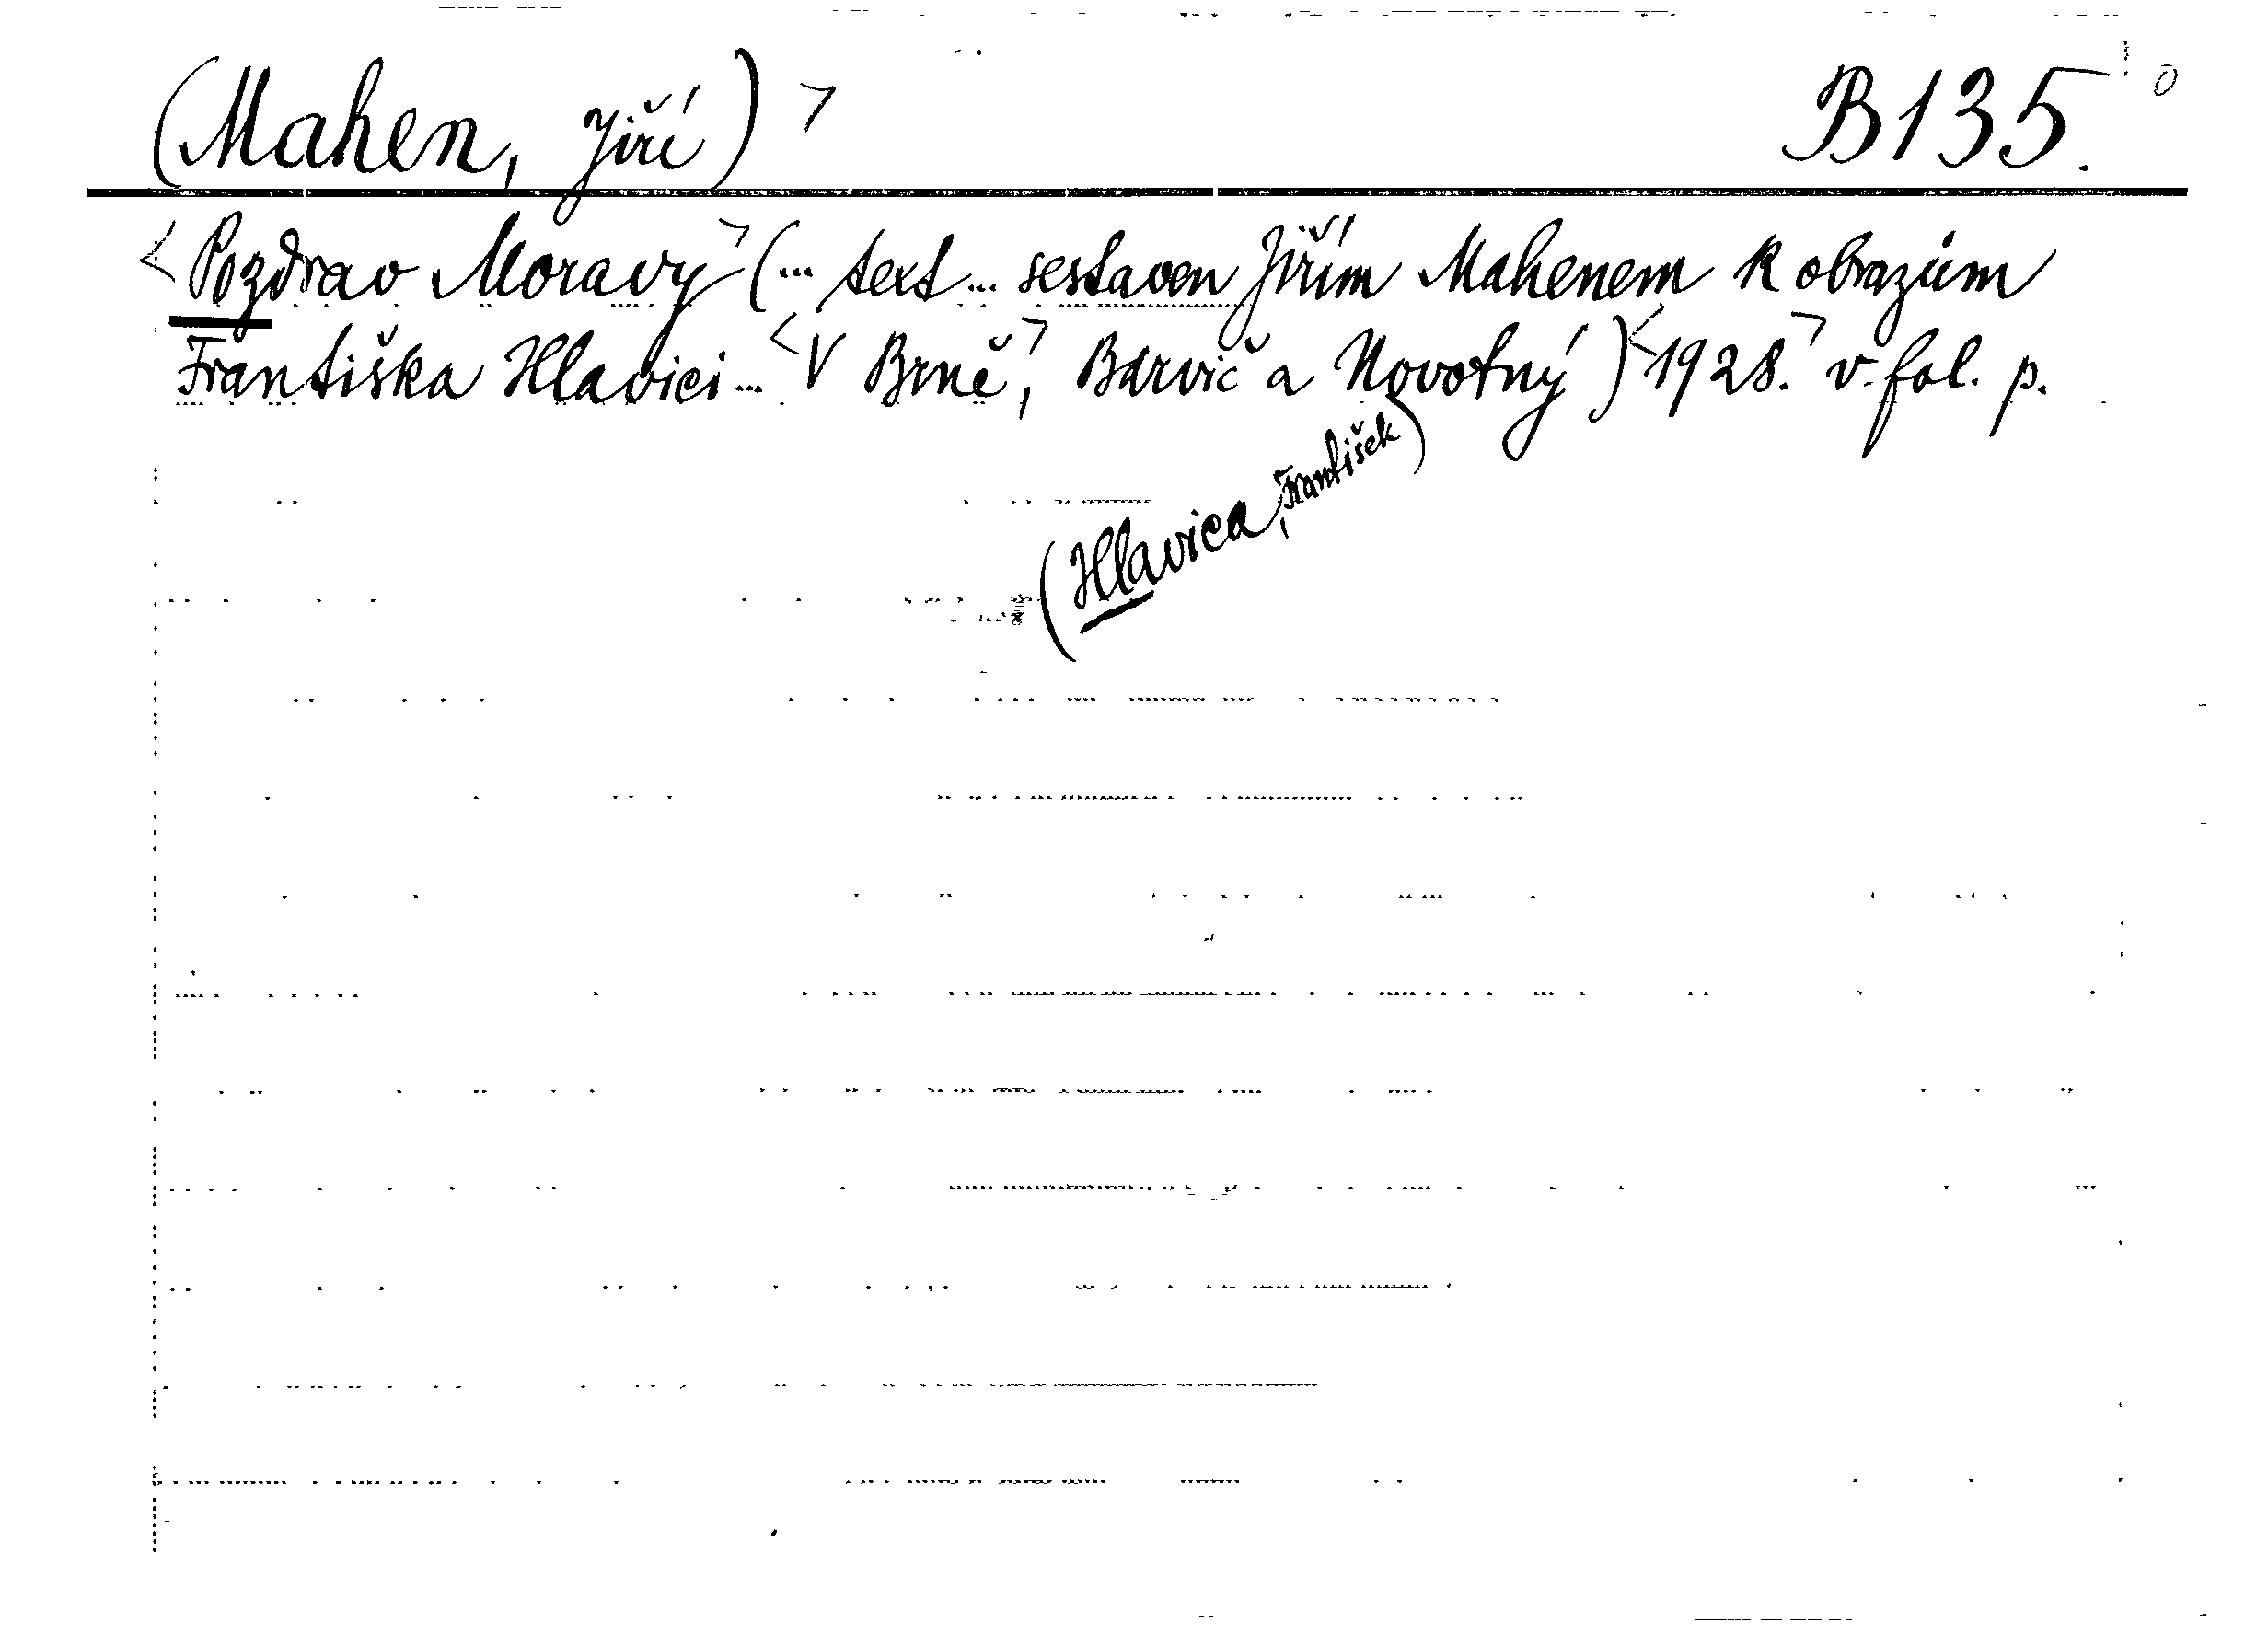 (Mahen, Jiří) B135.
<Pozdrav Moravy> (... text ... sestaven Jiřím Mahenem k obrazům
Františka Hlavici ... <V Brně>, Barvič a Novotný) <1928.> v. fol. p.
(Hlavica, František)